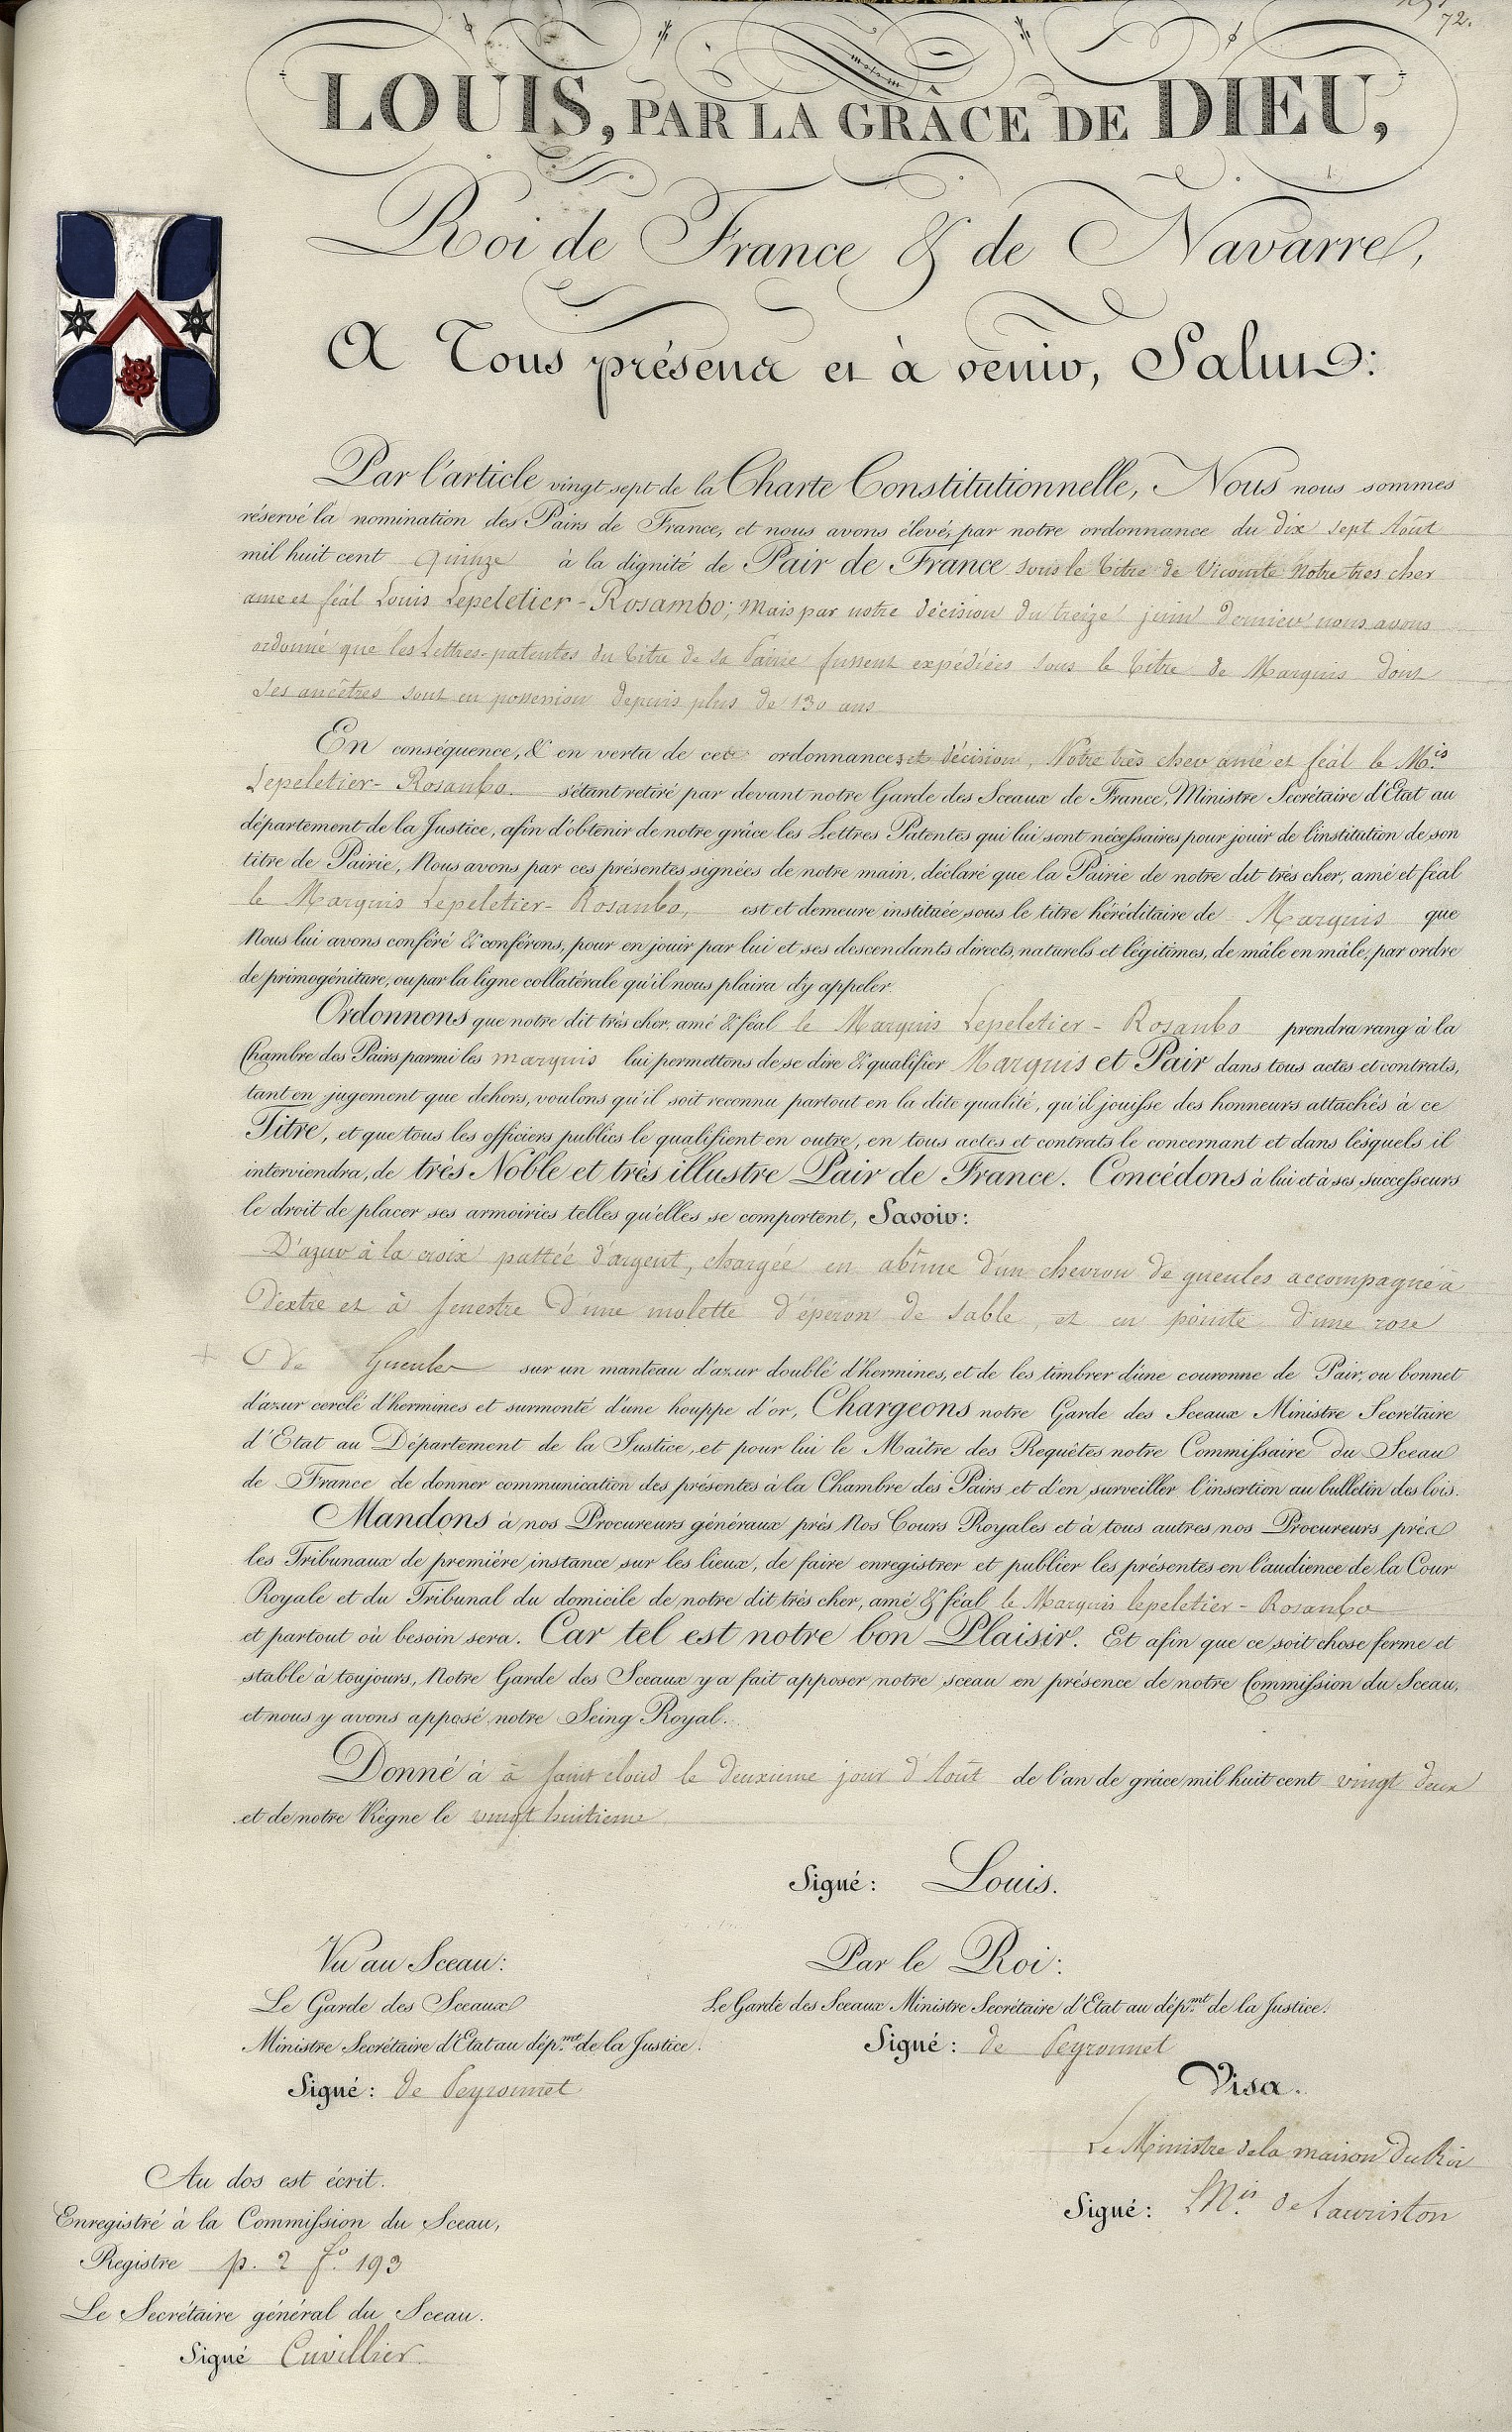 72.
LOUIS, PAR LA GRÂCE DE DIEU,
Roi de France & de Navarre,
A Tous présens et à venir, Salut:
Par l'article vingt sept de la Charte Constitutionnelle, Nous nous sommes
réservé la nomination des Pairs de France, et nous avons élevé, par notre ordonnance du dix sept Août
mil huit cent quinze à la dignité de Pair de France sous le titre de Vicomte Notre tres cher
amé et féal Louis Lepeletier-Rosambo; Mais par notre décision du treize juin dernier nous avons
ordonné que les Lettres-patentes du titre de sa Pairie fussent expédiées sous le titre de Marquis dont
ses ancêtres sont en possession depuis plus de 130 ans
En conséquence, & en vertu de ces ordonnances et décision, Notre très cher amé et féal le Mis.
Lepeletier-Rosanbo s'étant retiré par devant notre Garde des Sceaux de France, Ministre Secrétaire d'Etat au
département de la Justice, afin d'obtenir de notre grâce les Lettres Patentes qui lui sont nécessaires pour jouir de l'institution de son
titre de Pairie, Nous avons par ces présentes signées de notre main, déclaré que la Pairie de notre dit très cher, amé et féal
le Marquis Lepeletier-Rosanbo, est et demeure instituée sous le titre héréditaire de Marquis que
Nous lui avons conféré & conférons, pour en jouir par lui et ses descendants directs, naturels et légitimes, de mâle en mâle, par ordre
de primogéniture, ou par la ligne collatérale qu'il nous plaira d'y appeler.
Ordonnons que notre dit très cher, amé & féal le Marquis Lepeletier-Rosanbo prendra rang à la
Chambre des Pairs parmi les marquis lui permettons de se dire & qualifier Marquis et Pair dans tous actes et contrats,
tant en jugement que dehors, voulons qu'il soit reconnu partout en la dite qualité, qu'il jouisse des honneurs attachés à ce
Titre, et que tous les officiers publics le qualifient en outre, en tous actes et contrats le concernant et dans lesquels il
interviendra, de très Noble et très illustre Pair de France. Concédons à lui et à ses successeurs
le droit de placer ses armoiries telles qu'elles se comportent, Savoir:
D'azur à la croix pattée d'argent, chargée en abîme d'un chevron de gueules accompagné à
dextre et à senestre d'une molette d'éperon de sable, et en pointe d'une rose
+ de Gueules sur un manteau d'azur doublé d'hermines, et de les timbrer d'une couronne de Pair, ou bonnet
d'azur cerclé d'hermines et surmonté d'une houppe d'or, Chargeons notre Garde des Sceaux Ministre Secrétaire
d'Etat au Département de la Justice, et pour lui le Maître des Requêtes notre Commissaire du Sceau
de France de donner communication des présentes à la Chambre des Pairs et d'en surveiller l'insertion au bulletin des lois.
Mandons à nos Procureurs généraux près Nos Cours Royales et à tous autres nos Procureurs près
les Tribunaux de première instance sur les lieux, de faire enregistrer et publier les présentes en l'audience de la Cour
Royale et du Tribunal du domicile de notre dit très cher, amé & féal le Marquis lepeletier-Rosanbo
et partout où besoin sera. Car tel est notre bon Plaisir. Et afin que ce soit chose ferme et
stable à toujours, Notre Garde des Sceaux y a fait apposer notre sceau en présence de notre Commission du Sceau,
et nous y avons apposé notre Seing Royal.
Donné à à Saint cloud le deuxieme jour d'Août de l'an de grâce mil huit cent vingt deux
et de notre Règne le vingt huitieme
Signé: Louis.
Vu au Sceau:
Le Garde des Sceaux
Ministre Secrétaire d'Etat au dépmt. de la Justice.
Signé: de Peyronnet
Par le Roi:
Le Garde des Sceaux Ministre Secrétaire d'Etat au dépmt. de la Justice.
Signé: de Peyronnet
Visa.
Le Ministre de la maison du Roi
Signé: Mis. de Lauriston
Au dos est écrit.
Enregistré à la Commission du Sceau,
Registre p. 2 fo. 193
Le Secrétaire général du Sceau.
Signé Cuvillier